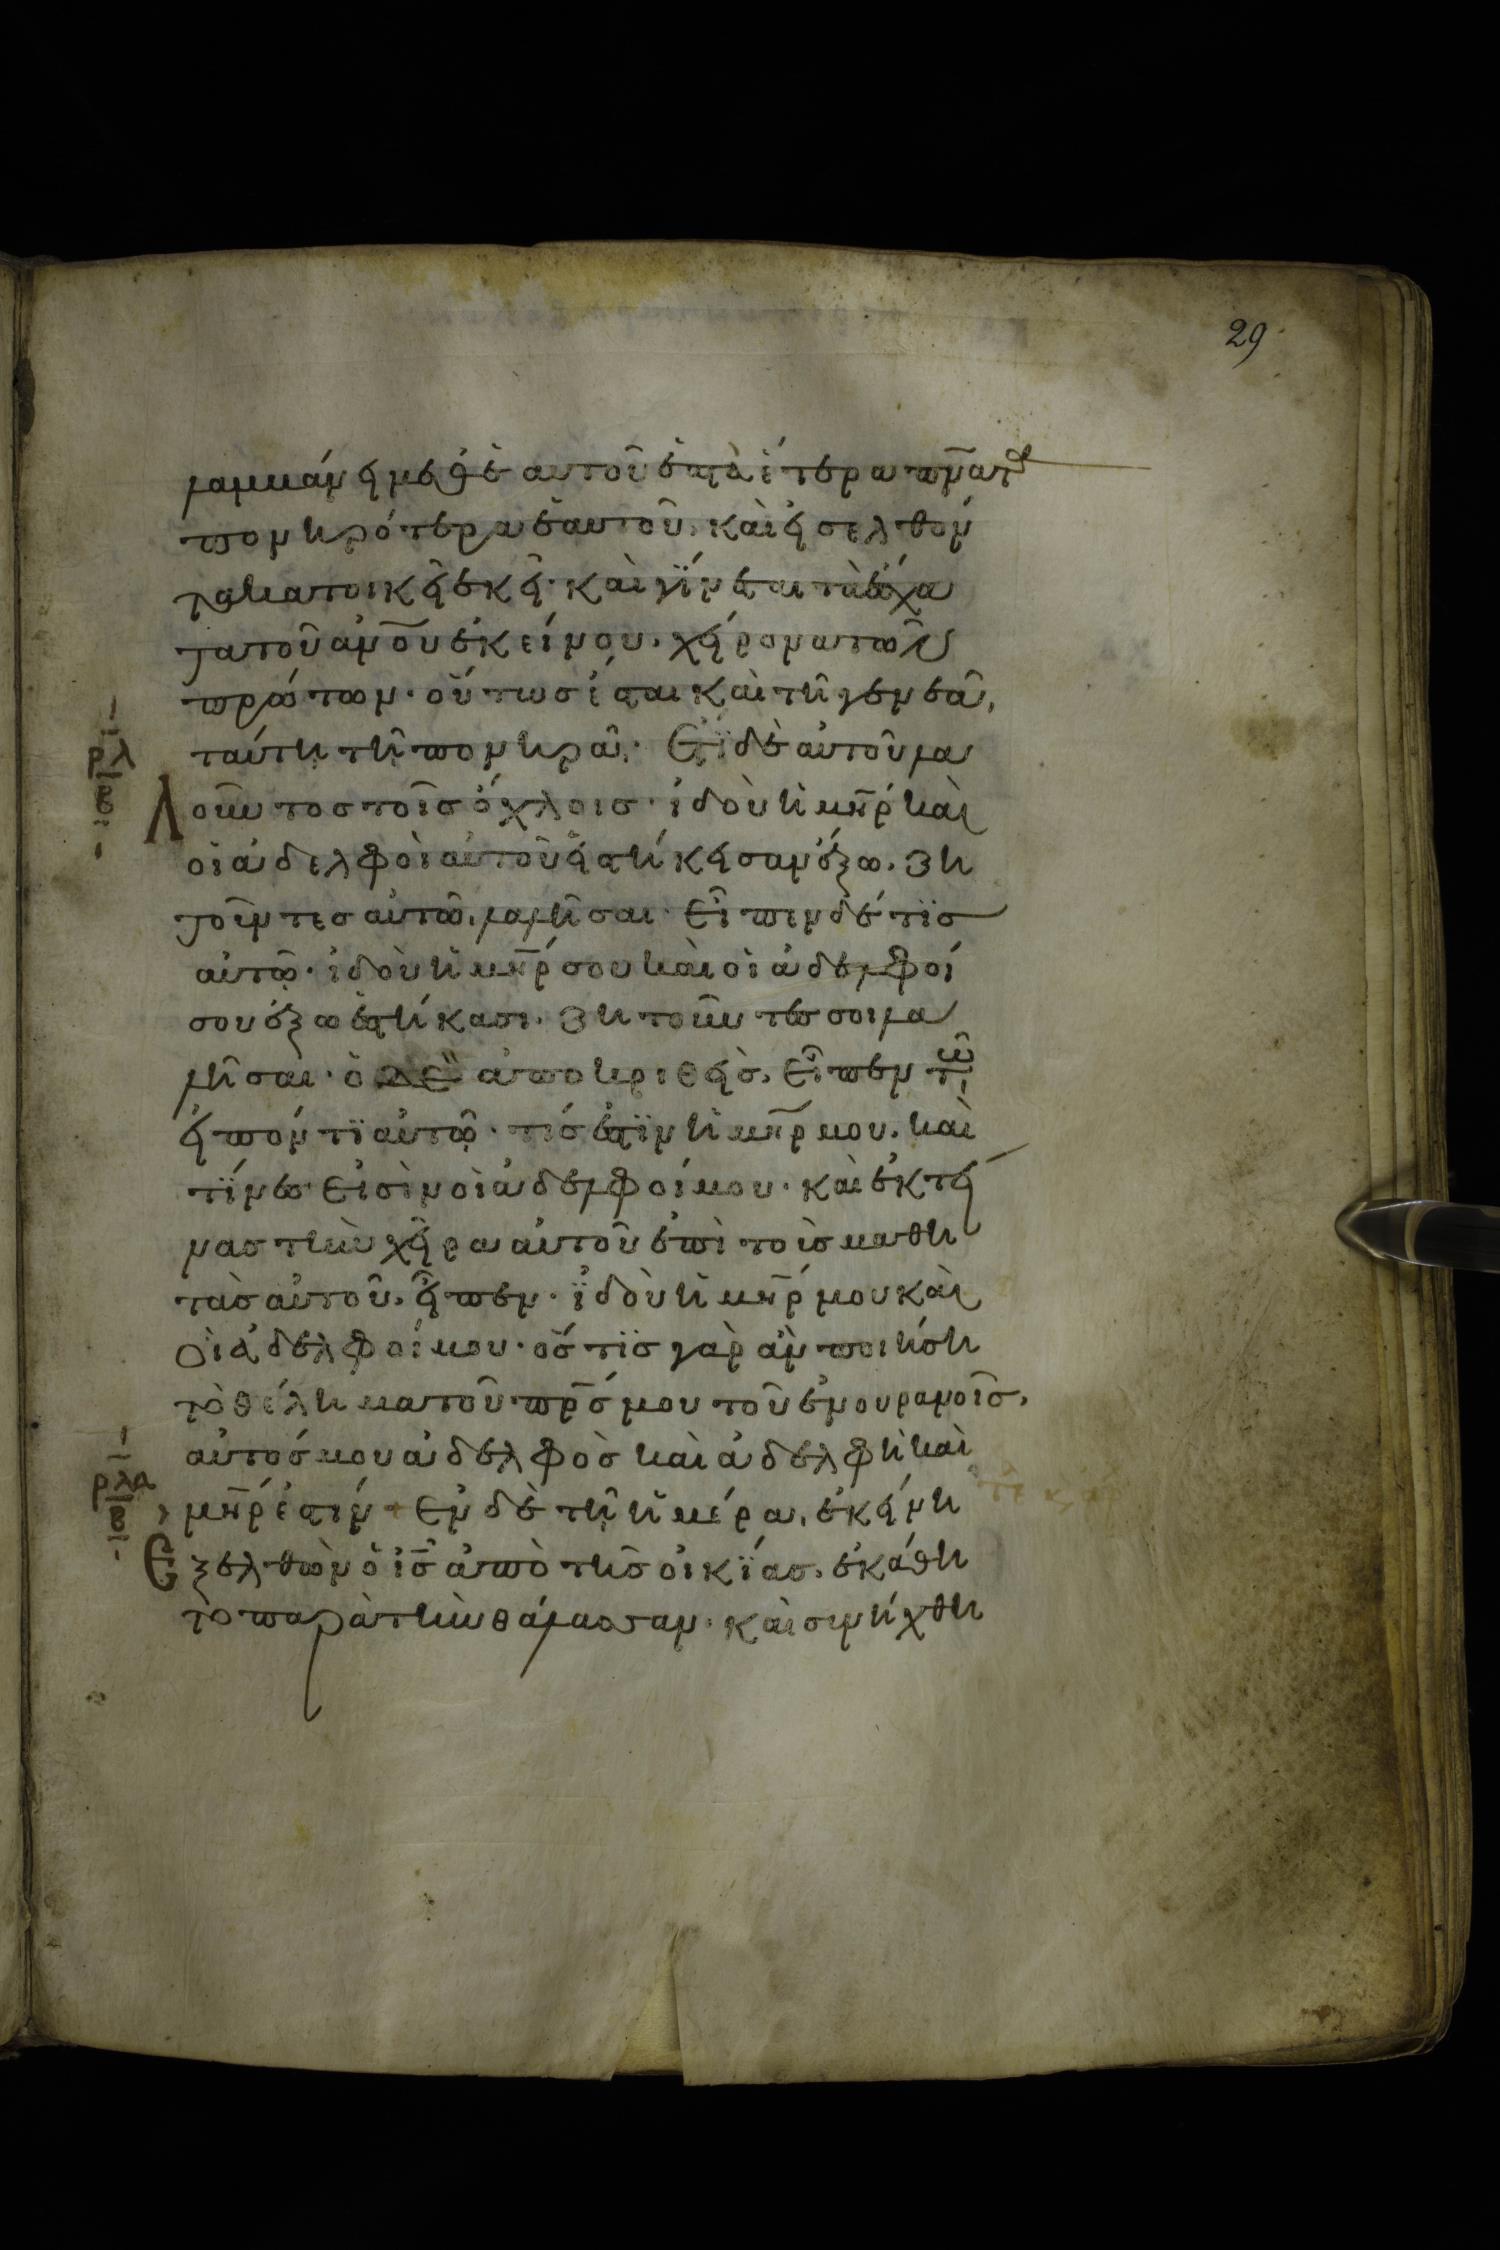 29
λαμβάνει μεθὲ αυτοῦ ἑπτὰ ἕτερα πν̅ατα
πονηρότερα ἑαυτοῦ. καὶ εἰσελθόν
τα κατοικεῖ ἐκεῖ· καὶ γίνεται τὰ ἔσχα
τα τοῦ ἀν̅ου ἐκείνου. χείρονα τῶν
πρώτων· οὕτως ἔσται καὶ τῆ γενεᾶ,
ταύτη τῆ πονηρᾶ· Ετϊ δὲ αὐτοῦ λα
ρλ
β
λοῦντος τοῖς ὄχλοις· ἰδοὺ ἡ μη̅ρ καὶ
οἱ ἀδελφοὶ αὐτοῦ εἱστήκεισαν ἔξω. ζη
τοῦντες αὐτῶ. λαλῆσαι· Εἶπεν δέ τϊς
αὐτῶ· ἰδοὺ ἡ μη̅ρ σου καὶ οἱ ἀδελφοί
σου ἔξω ἑστήκασι. ζητοῦντές σοι λα
λῆσαι· ὁ δὲ ἀποκριθεὶς. εἶπεν τῶ
εἰπόντϊ αὐτῶ· τίς ἐστϊν ἡ μη̅ρ μου. καὶ
τίνες εἰσὶν οἱ ἀδελφοί μου· καὶ ἐκτεί
νας τὴν χεῖρα αὐτοῦ ἐπὶ τοὺς μαθη
τὰς αὐτοῦ. εἶπεν· ἰδοὺ ἡ μη̅ρ μου καὶ
οἱ ἀδελφοί μου· ὅς τϊς γὰρ ἂν ποιήση
τὸ θέλημα τοῦ πρ̅ς μου τοῦ ἐν ουρανοῖς,
αὐτός μου ἀδελφὸς καὶ ἀδελφὴ καὶ
ρλα
β
μη̅ρ ἐστίν + Εν δὲ τῆ ἡμέρα, ἐκείνη
Εξελθὼν ὁ ις̅ ἀπὸ τῆς οἰκίας. ἐκάθη
το παρὰ τὴν θάλασσαν· καὶ συνήχθη